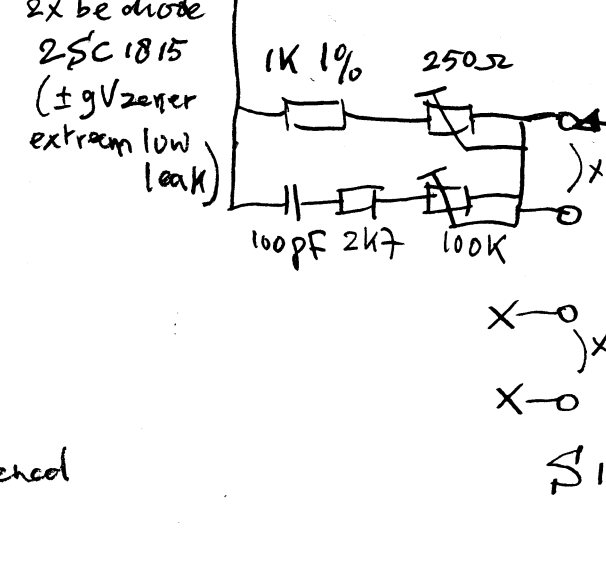 2x be diode
2SC 1815
(± 9V zener
extream low
leak)
1K 1%
250Ω
100pF 2K7
100K
x
X
x
X
S1